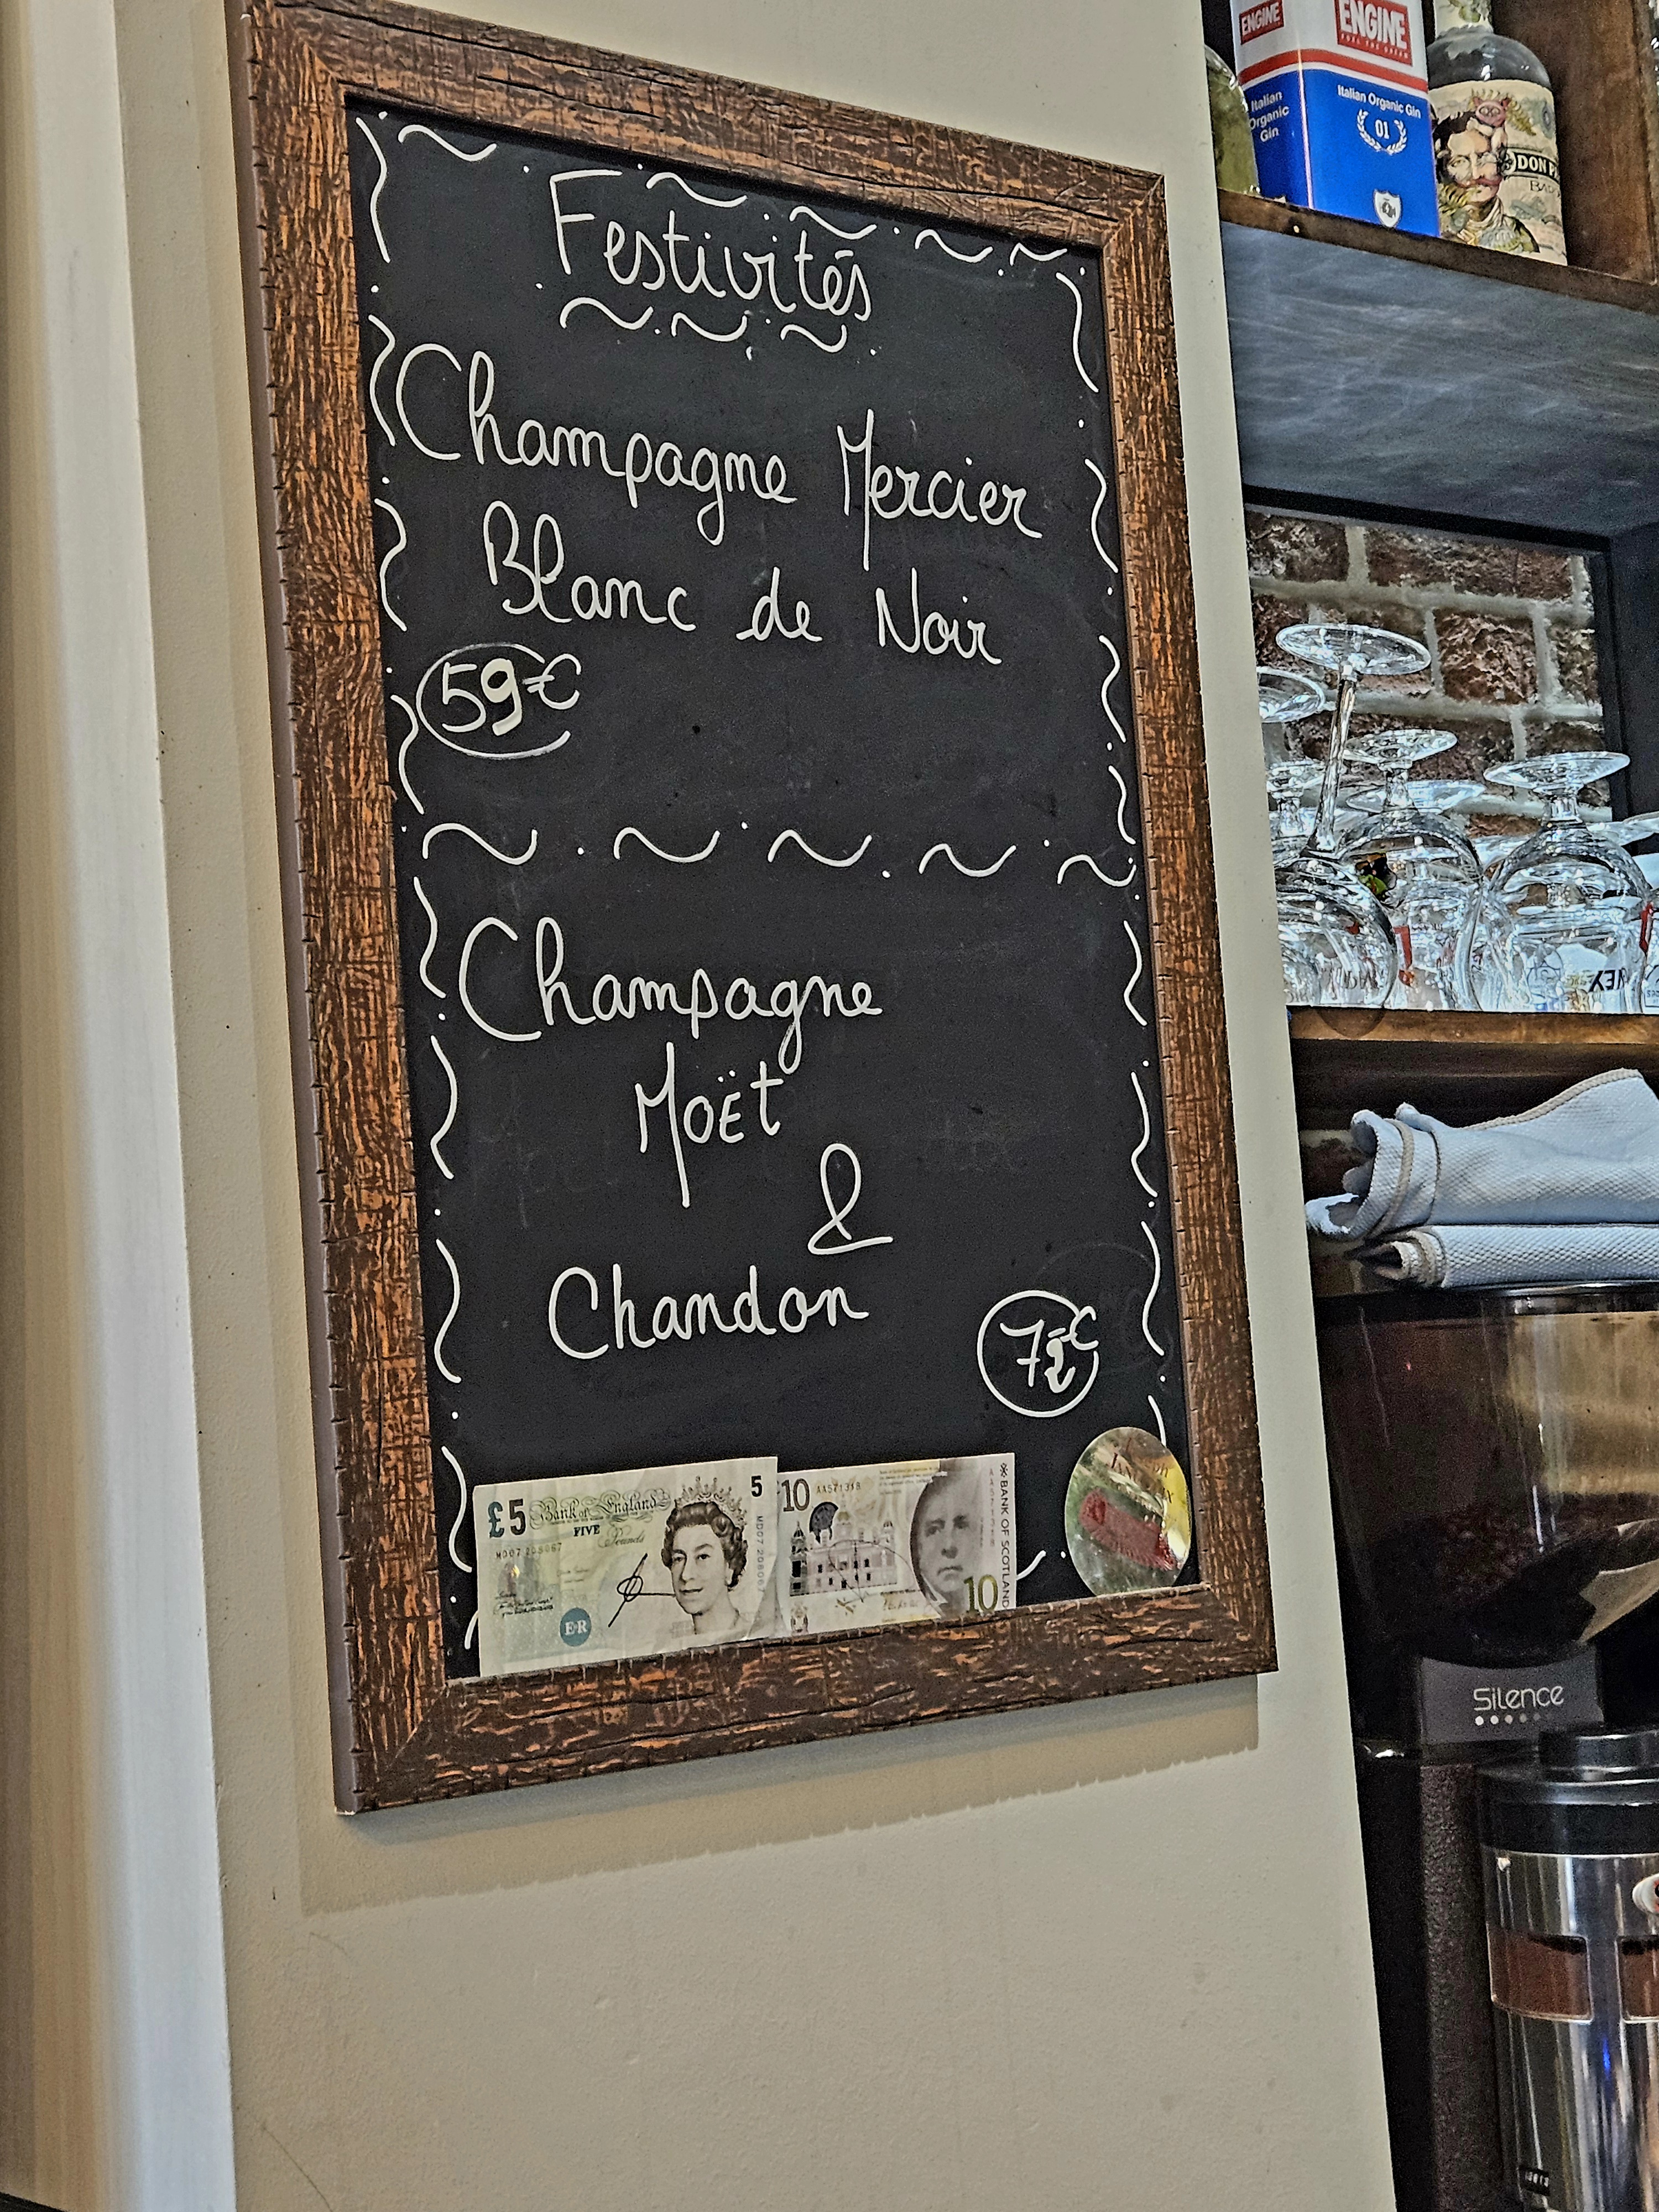 Festivités
Champagne Mercier
Blanc de Noir
59€
Champagne
Moët
&
Chandon
£5 Bank of England 5
FIVE
Pounds
MD07 208067
MD07 208067
E·R
10 AA571318
BANK OF SCOTLAND
10
ENGINE
ENGINE
FUEL THE DREAM
Italian
Organic
Gin
Italian Organic Gin
01
DON
Silence